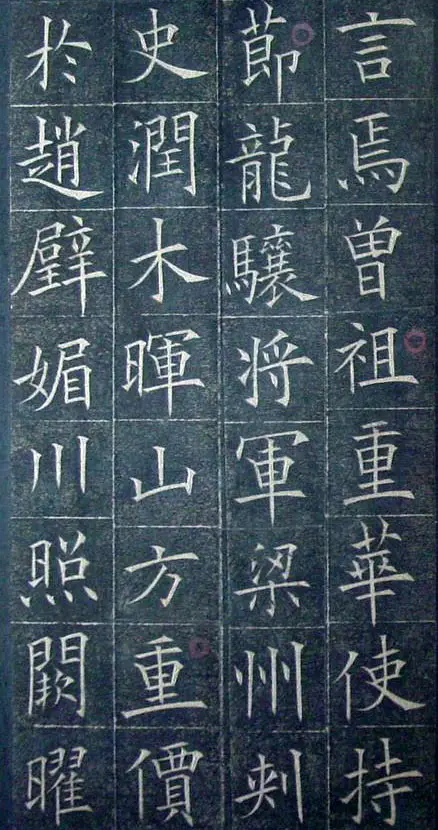 言焉曽祖重華使持
節龍驤将軍梁州刺
史潤木暉山方重價
於趙璧媚川照闕曜